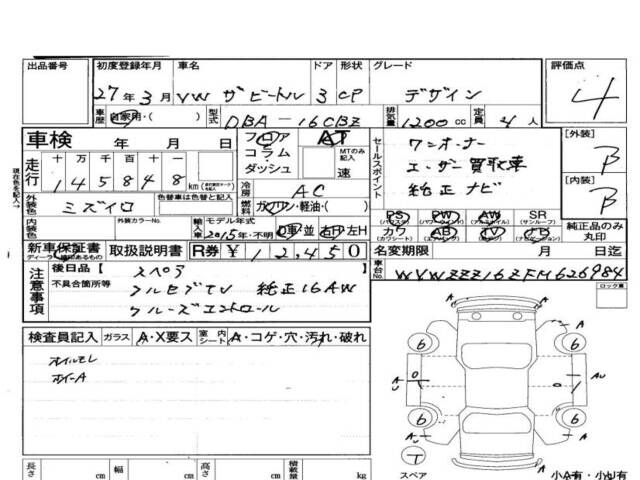 出品番号 初度登録年月 車名 ドア 形状 グレード 評価点
27年3月 VW ザビートル 3 CP デザイン 4
車歴 自家用・( ) 型式 DBA-16CBZ 排気量 1200cc 定員 4人
車検 年 月 日 フロア AT
コラム
ダッシュ MTのみ記入 速
走行 十万 万 千 百 十 一
145848km
冷房 AC
外装色 ミズイロ 色替車は色替と記入 燃料 ガソリン・軽油・( )
内装色 外装カラーNo. 輸入車 モデル年式 2015年・不明 D車・並 右H・左H
セールスポイント
ワンオーナー
ユーザー買取車
純正ナビ
[外装] B
[内装] B
PS PW AW SR
カワ AB TV ナビ
純正品のみ丸印
新車保証書 取扱説明書 R券 ¥12,450
名変期限 月 日迄
車台No. WVWZZZ16ZFM626984
注意事項 後日品 [ スペア ]
不具合箇所等 フルセグTV 純正16AW
クルーズコントロール
ロック東
検査員記入 ガラス A・X要ス 室内シート A・コゲ・穴・汚れ・破れ
オイルモレ
ホイールA
6 6
A U
AU
6 6
T
スペア 小A有・小U有
長さ cm 幅 cm 高さ cm 積載量 kg
現在色を記入→